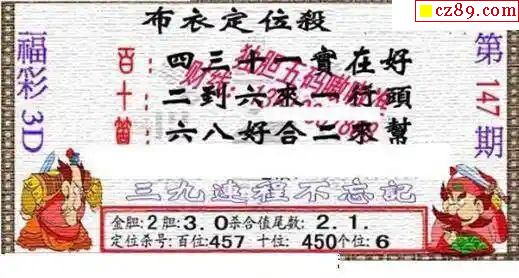 cz89.com
布衣定位殺
福彩3D
第147期
百:四三十一實在好
十:二到六來一行頭
個:六八好合二來幫
三九連程不忘記
金胆:2胆:3.0杀合值尾数:2.1.
定位杀号:百位:457 十位:450个位:6